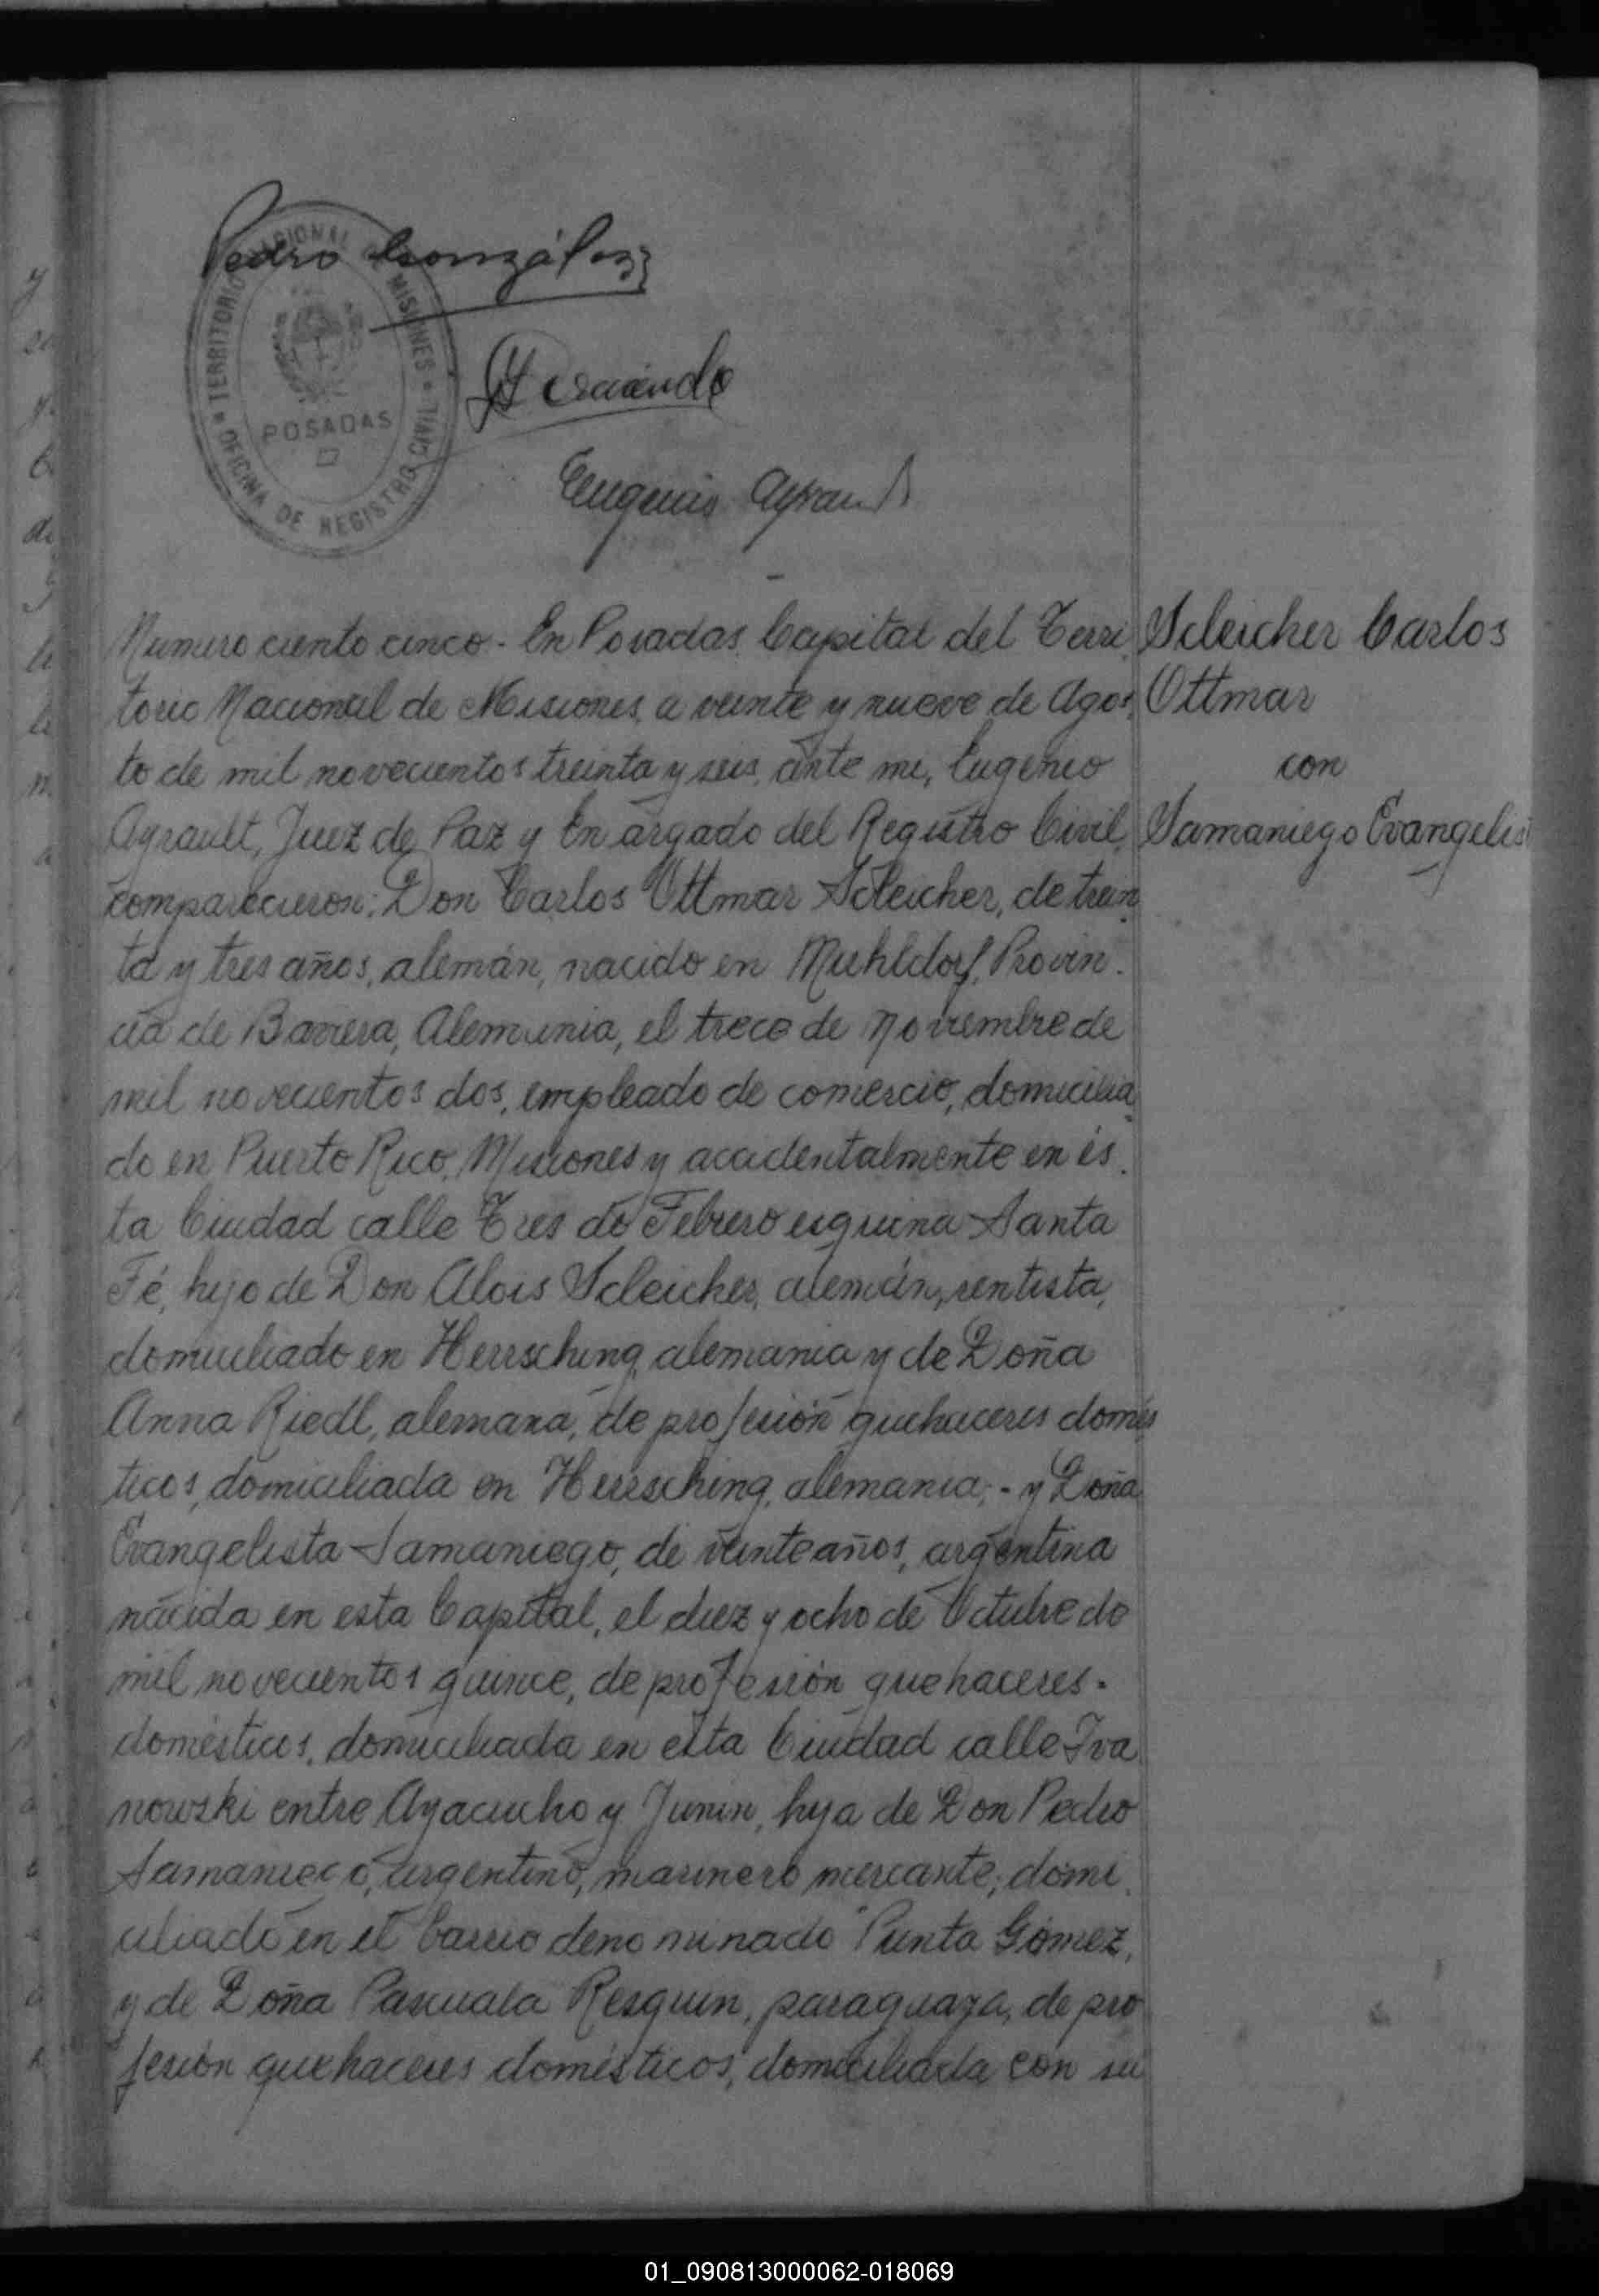 Pedro González
TERRITORIO NACIONAL MISIONES
POSADAS
OFICINA DE REGISTRO CIVIL
Eugenio Ayrault
Numero ciento cinco - En Posadas, Capital del Terri
torio Nacional de Misiones, a veinte y nueve de Agos
to de mil novecientos treinta y seis, ante mi, Eugenio
Ayrault, Juez de Paz y En argado del Registro Civil,
comparecieron: Don Carlos Ottmar Scleicher, de trein
ta y tres años, alemán, nacido en Muhldorf, Provin
cia de Baviera, Alemania, el trece de Noviembre de
mil novecientos dos, empleado de comercio, domicilia
do en Puerto Rico, Misiones y accidentalmente en és
ta Ciudad calle Tres de Febrero esquina Santa
Fé, hijo de Don Alois Scleicher, alemán, rentista,
domiciliado en Herrsching, alemania y de Doña
Anna Riedl, alemana, de profesión quehaceres domés
ticos, domiciliada en Herrsching, alemania; - y Doña
Evangelista Samaniego, de veinte años, argentina
nacida en esta Capital, el diez y ocho de Octubre de
mil novecientos quince, de profesión quehaceres -
domésticos, domiciliada en esta Ciudad calle Iva
nowski entre Ayacucho y Junin, hija de Don Pedro
Samaniego, argentino, marinero mercante, domi
ciliado en el barrio denominado "Punta Gómez,
y de Doña Pascuala Resquin, paraguaya, de pro
fesión quehaceres domésticos, domiciliada con su
Scleicher Carlos
Ottmar
con
Samaniego Evangelis
01_090813000062-018069